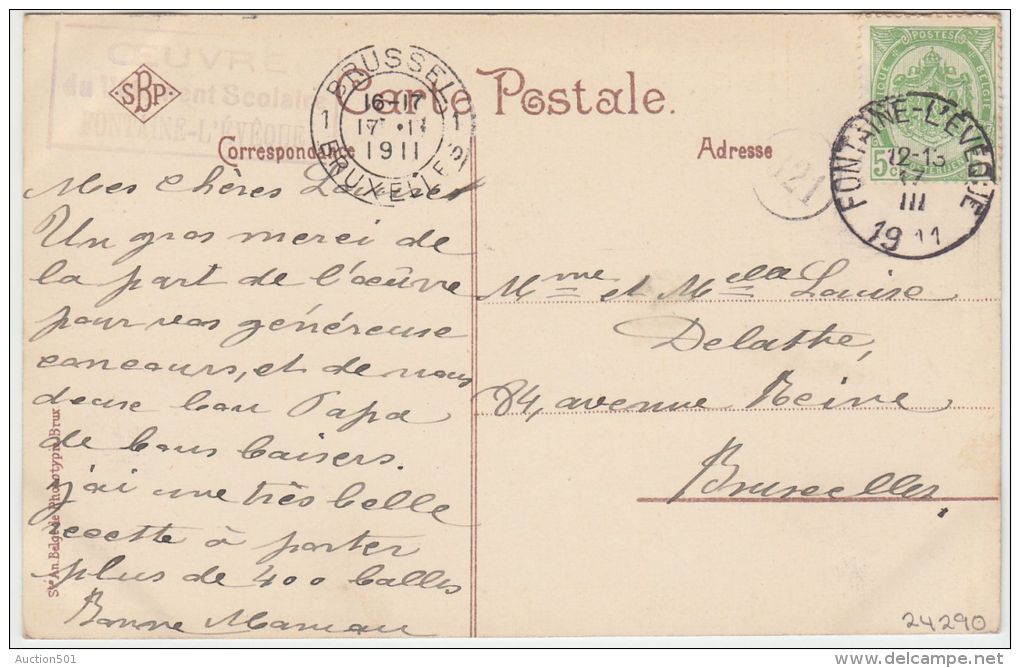 ŒUVRE
du Vêtement Scolaire
FONTAINE-L'ÉVÊQUE
SBP
BRUSSEL
1 16-17 1
17 · III
1911
BRUXELLES
Carte Postale.
Correspondance
Adresse
POSTES
5 CENTIMES
FONTAINE-L'EVEQUE
12-13
17
III
1911
321
Mes Chères
Un gros merci de
la part de l'oeuvre
pour vos généreuse
concours, et de nous
deux bon Papa
de bons baisers.
j'ai une très belle
recette à porter
plus de 400 balles
Bonne Maman
Mme et Melle Louise
Delattre,
84, avenue Reine
Bruxelles
Sté An. Belge de Phototypie Brux
24290
Auction501
delcampe.net